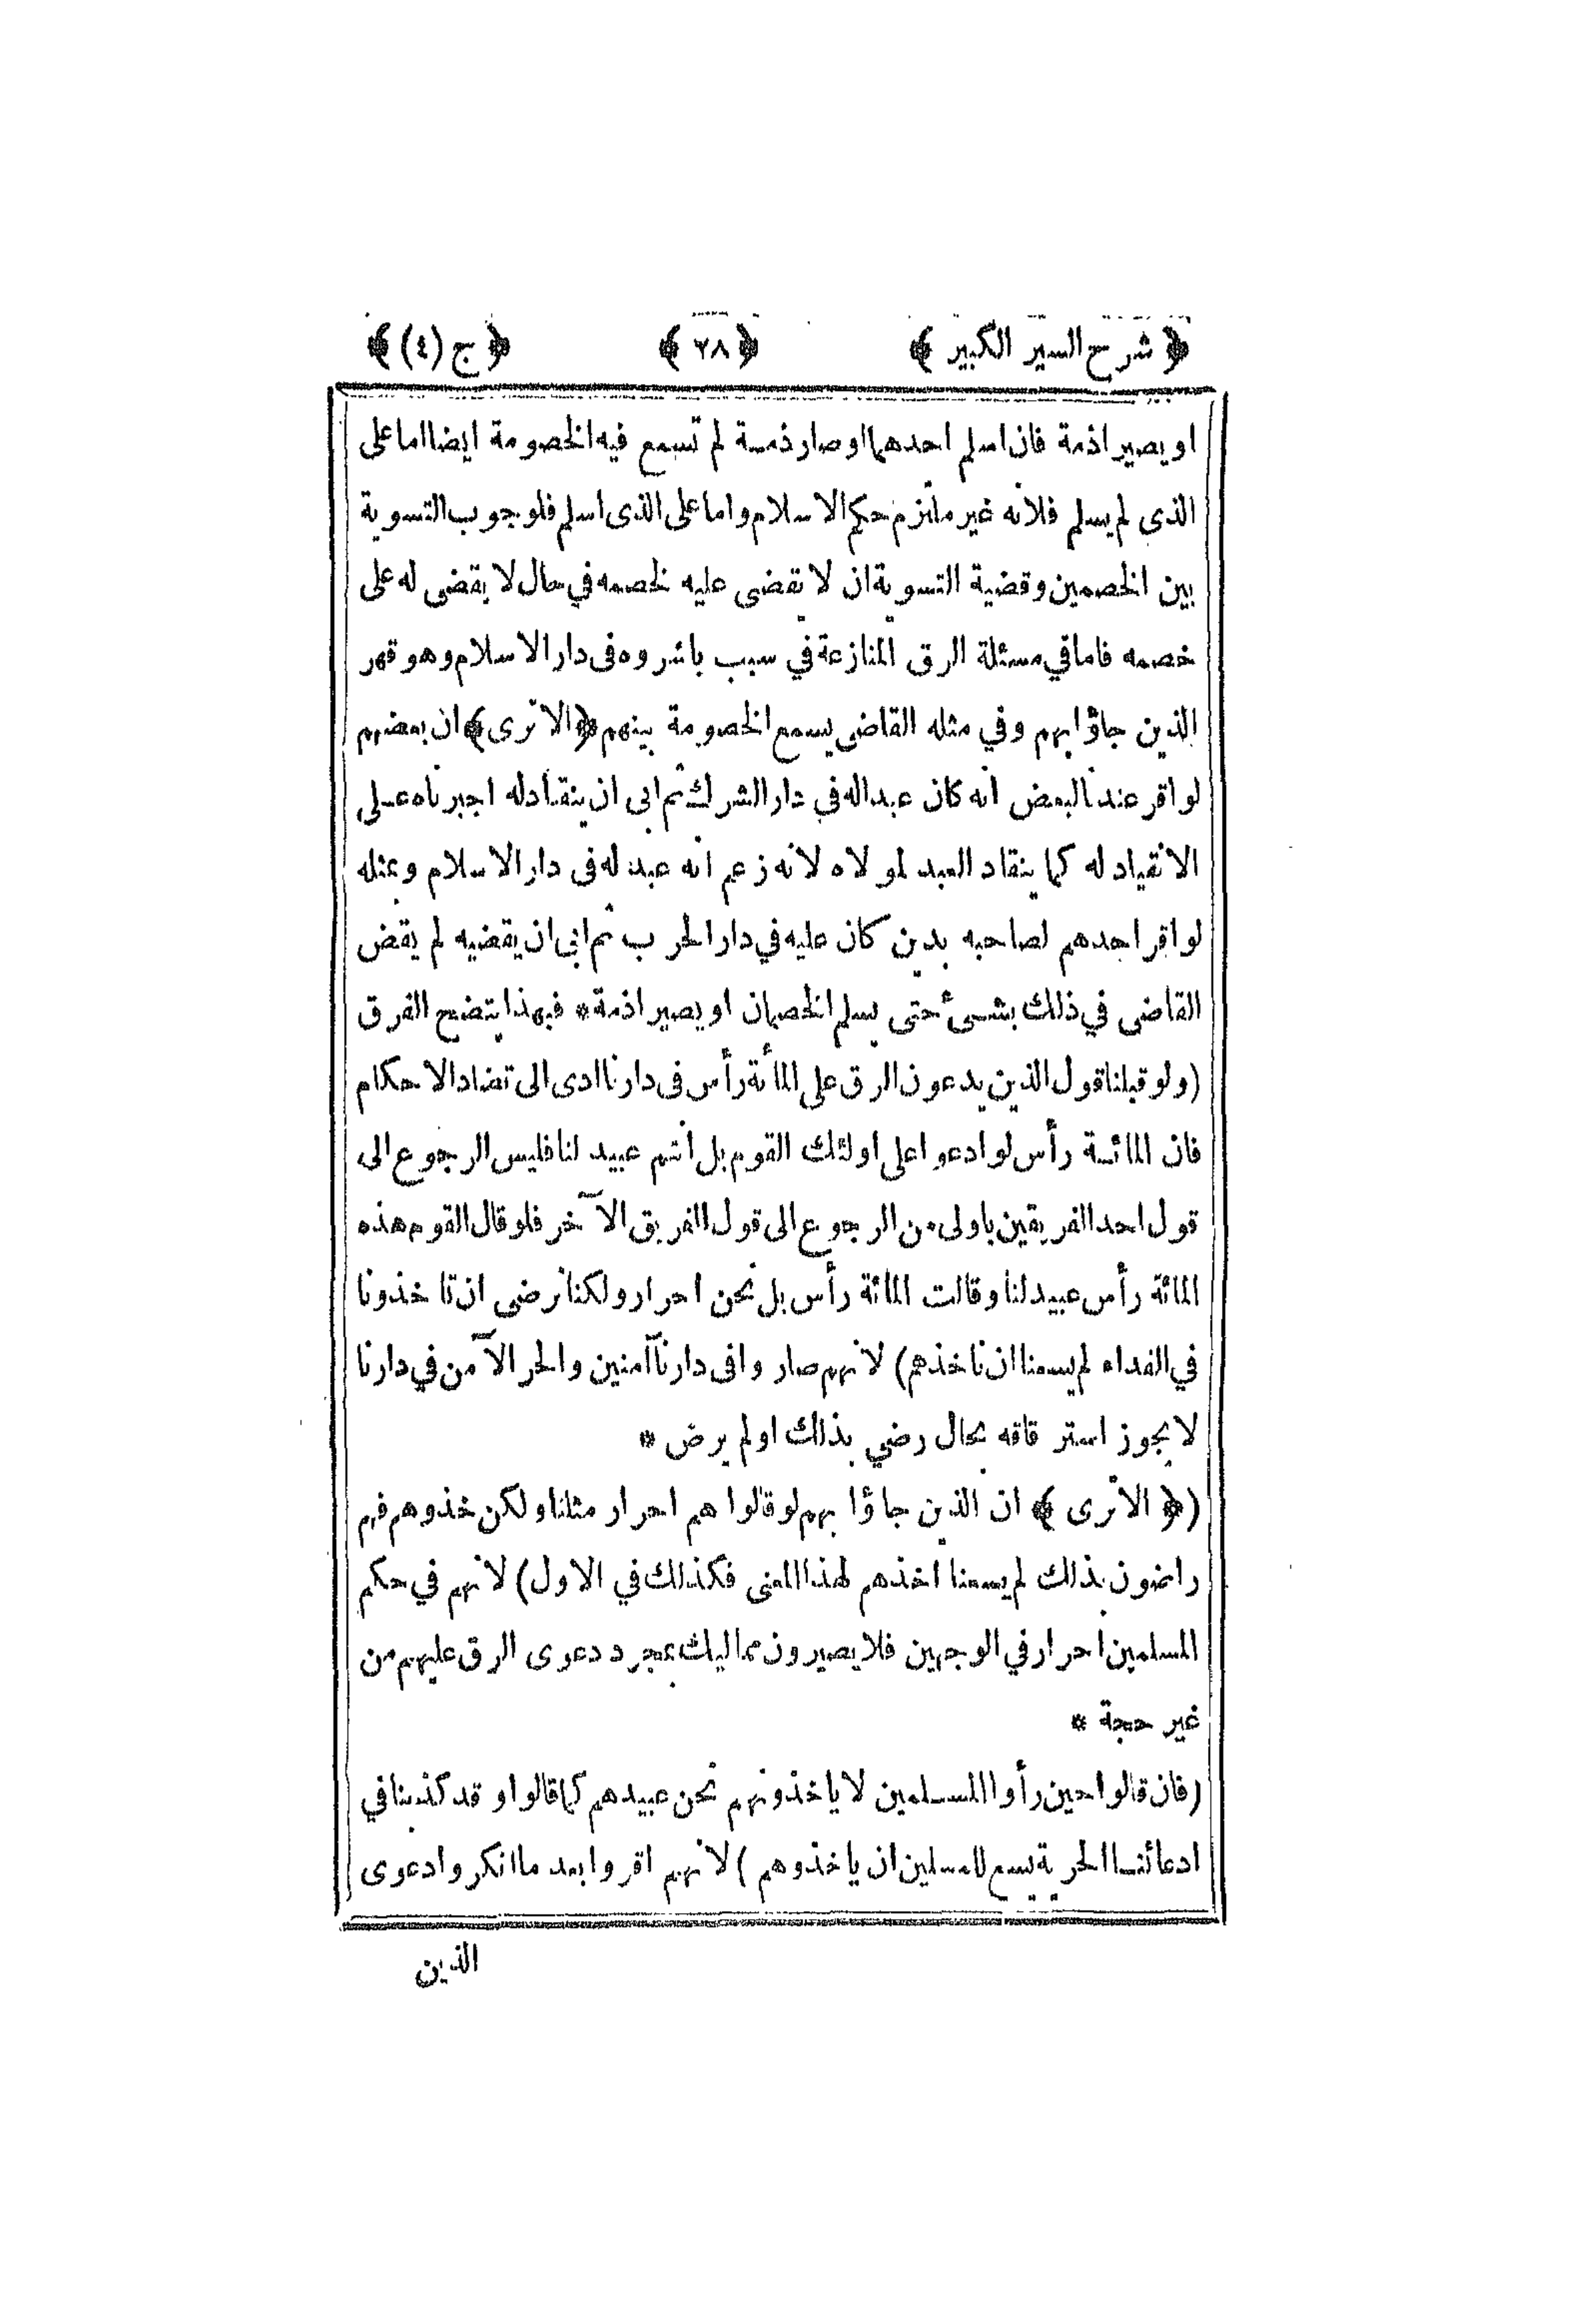 ﴿ شرح السير الكبير ﴾ ﴿ ٢٨ ﴾ ﴿ ج (٤) ﴾
او يصيرا ذمة فان اسلم احدهما او صار ذمة لم تسمع فيه الخصومة ايضا اما على
الذى لم يسلم فلانه غير ملتزم حكم الاسلام واما على الذى اسلم فلوجوب التسوية
بين الخصمين وقضية التسوية ان لا تقضى عليه لخصمه في حال لا يقضى له على
خصمه فاما في مسئلة الرق المنازعة في سبب باشروه فى دار الاسلام وهو قهر
الذين جاؤا بهم وفي مثله القاضى يسمع الخصومة بينهم ﴿الا ترى﴾ ان بعضهم
لو اقر عند البعض انه كان عبدا له في دار الشرك ثم ابى ان ينقاد له اجبرناه على
الانقياد له كما ينقاد العبد لمولاه لانه زعم انه عبد له فى دار الاسلام وبمثله
لو اقر احدهم لصاحبه بدين كان عليه في دار الحرب ثم ابى ان يقضيه لم يقض
القاضى في ذلك بشئ حتى يسلم الخصمان او يصيرا ذمة * فبهذا يتضح الفرق
(ولو قبلنا قول الذين يدعون الرق على المائة رأس فى دارنا ادى الى تضاد الاحكام
فان المائة رأس لو ادعوا على اولئك القوم بل انتم عبيد لنا فليس الرجوع الى
قول احد الفريقين باولى من الرجوع الى قول الفريق الآخر فلو قال القوم هذه
المائة رأس عبيد لنا وقالت المائة رأس بل نحن احرار ولكنا نرضى ان تاخذونا
في الفداء لم يسعنا ان ناخذهم) لانهم صاروا فى دارنا آمنين والحر الآمن في دارنا
لا يجوز استرقاقه بحال رضي بذلك او لم يرض *
(﴿ الا ترى ﴾ ان الذين جاؤا بهم لو قالوا هم احرار مثلنا ولكن خذوهم فهم
راضون بذلك لم يسعنا اخذهم لهذا المعنى فكذلك في الاول) لانهم في حكم
المسلمين احرار في الوجهين فلا يصيرون مماليك بمجرد دعوى الرق عليهم من
غير حجة *
(فان قالوا حين رأوا المسلمين لا ياخذونهم نحن عبيدهم كما قالوا وقد كذبنا في
ادعائنا الحرية يسع للمسلمين ان ياخذوهم) لانهم اقروا بعد ما انكروا دعوى
الذين